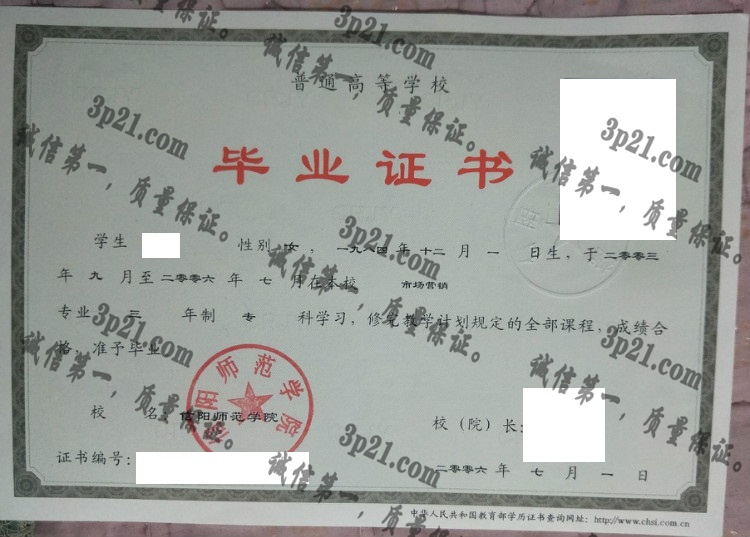 普通高等学校
毕业证书
学生 性别 女 ，一九八四 年 十二 月 一 日生，于 二〇〇三
年 九 月至 二〇〇六 年 七 月在本校 市场营销
专业 三 年制 专 科学习，修完教学计划规定的全部课程，成绩合
格，准予毕业。
校 名：信阳师范学院
校（院）长：
证书编号：
二〇〇六 年 七 月 一 日
中华人民共和国教育部学历证书查询网址：http://www.chsi.com.cn
信阳师范学院
3p21.com
诚信第一，质量保证。
3p21.com
诚信第一，质量保证。
3p21.com
诚信第一，质量保证。
3p21.com
诚信第一，质量保证。
3p21.com
诚信第一，质量保证。
3p21.com
诚信第一，质量保证。
3p21.com
诚信第一，质量保证。
质量保证。